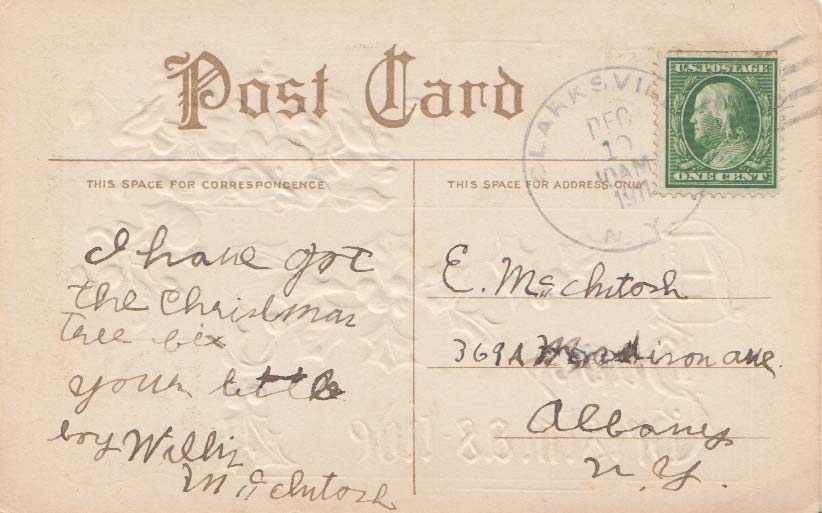 Post Card
THIS SPACE FOR CORRESPONDENCE
THIS SPACE FOR ADDRESS ONLY
CLARKSVILLE
DEC
10 AM
N.Y.
U.S. POSTAGE
ONE CENT
I have got
the Christmas
tree
your little
boy Willie
McIntosh
E. McIntosh
369A Madison ave.
Albany
N.Y.